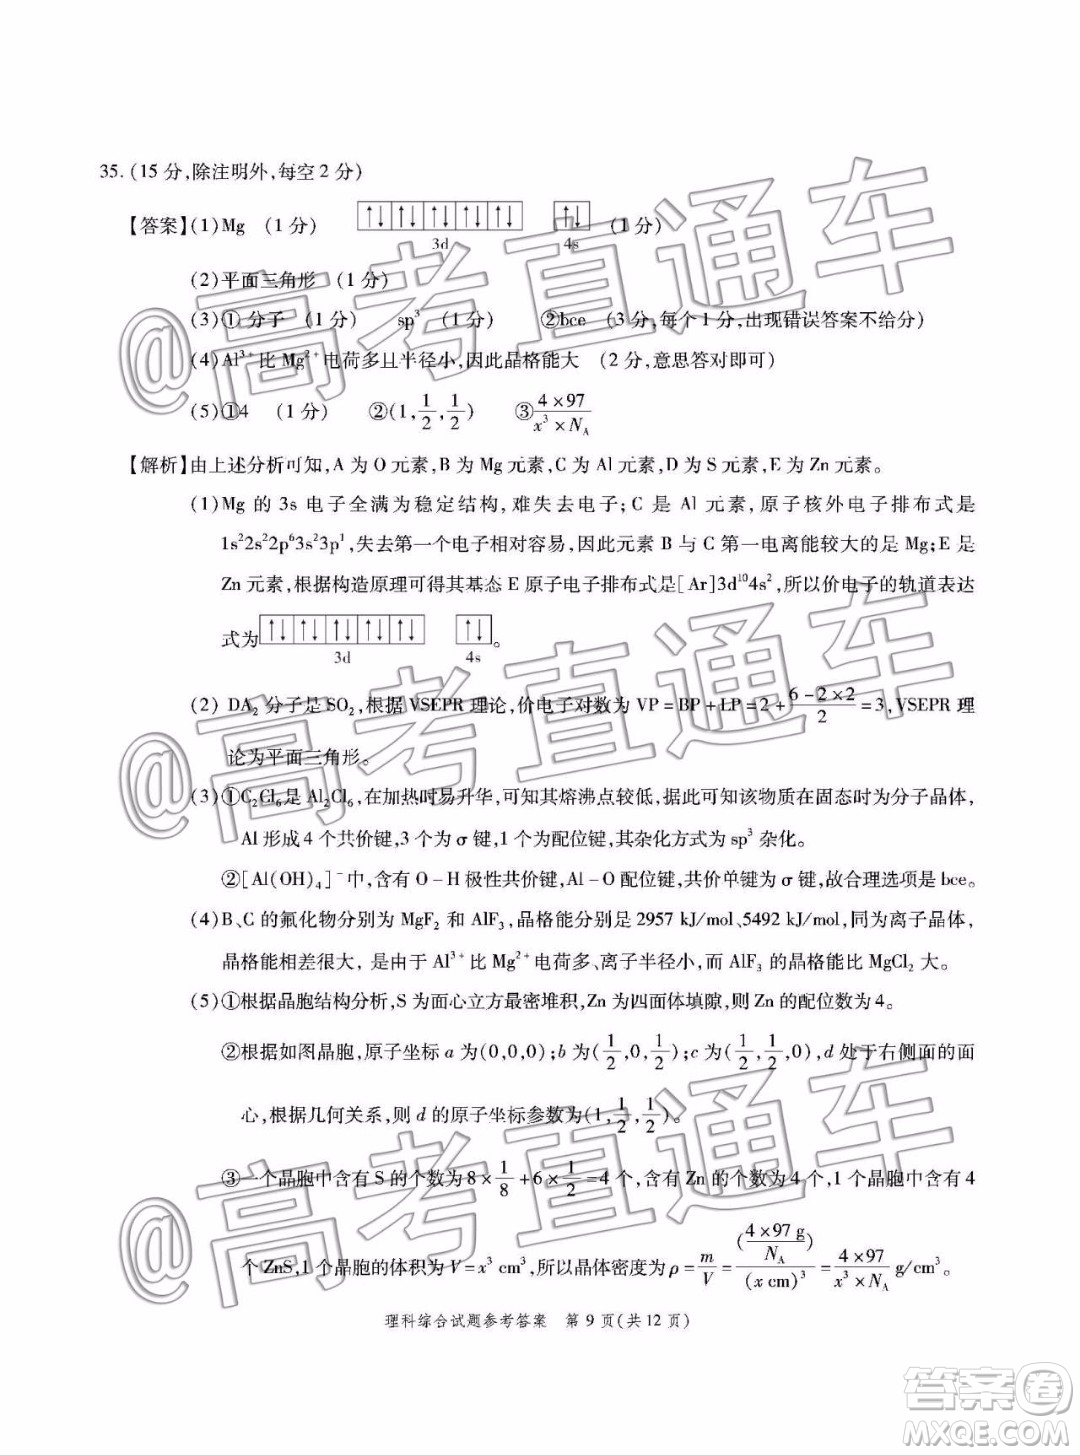 35.(15分,除注明外,每空2分)
【答案】(1)Mg (1分) ↑↓ ↑↓ ↑↓ ↑↓ ↑↓ ↑↓ (1分)
3d 4s
(2)平面三角形 (1分)
(3)①分子 (1分) sp³ (1分) ②bce (3分,每个1分,出现错误答案不给分)
(4)Al³⁺比Mg²⁺电荷多且半径小,因此晶格能大 (2分,意思答对即可)
(5)①4 (1分) ②(1,1/2,1/2) ③4×97/(x³×N_A)
【解析】由上述分析可知,A为O元素,B为Mg元素,C为Al元素,D为S元素,E为Zn元素。
(1)Mg的3s电子全满为稳定结构,难失去电子;C是Al元素,原子核外电子排布式是
1s²2s²2p⁶3s²3p¹,失去第一个电子相对容易,因此元素B与C第一电离能较大的是Mg;E是
Zn元素,根据构造原理可得其基态E原子电子排布式是[Ar]3d¹⁰4s²,所以价电子的轨道表达
式为 ↑↓ ↑↓ ↑↓ ↑↓ ↑↓ ↑↓ 。
3d 4s
(2) DA₂分子是SO₂,根据VSEPR理论,价电子对数为VP=BP+LP=2+(6-2×2)/2=3,VSEPR理
论为平面三角形。
(3)①C₂Cl₆是Al₂Cl₆,在加热时易升华,可知其熔沸点较低,据此可知该物质在固态时为分子晶体,
Al形成4个共价键,3个为σ键,1个为配位键,其杂化方式为sp³杂化。
②[Al(OH)₄]⁻中,含有O-H极性共价键,Al-O配位键,共价单键为σ键,故合理选项是bce。
(4)B、C的氟化物分别为MgF₂和AlF₃,晶格能分别是2957 kJ/mol、5492 kJ/mol,同为离子晶体,
晶格能相差很大,是由于Al³⁺比Mg²⁺电荷多、离子半径小,而AlF₃的晶格能比MgCl₂大。
(5)①根据晶胞结构分析,S为面心立方最密堆积,Zn为四面体填隙,则Zn的配位数为4。
②根据如图晶胞,原子坐标a为(0,0,0);b为(1/2,0,1/2);c为(1/2,1/2,0),d处于右侧面的面
心,根据几何关系,则d的原子坐标参数为(1,1/2,1/2)。
③一个晶胞中含有S的个数为8×1/8+6×1/2=4个,含有Zn的个数为4个,1个晶胞中含有4
个ZnS,1个晶胞的体积为V=x³ cm³,所以晶体密度为ρ=m/V=(4×97 g/N_A)/(x cm)³=4×97/(x³×N_A) g/cm³。
理科综合试题参考答案 第9页(共12页)
@高考直通车
@高考直通车
@高考直通车
答案卷
MXQE.COM